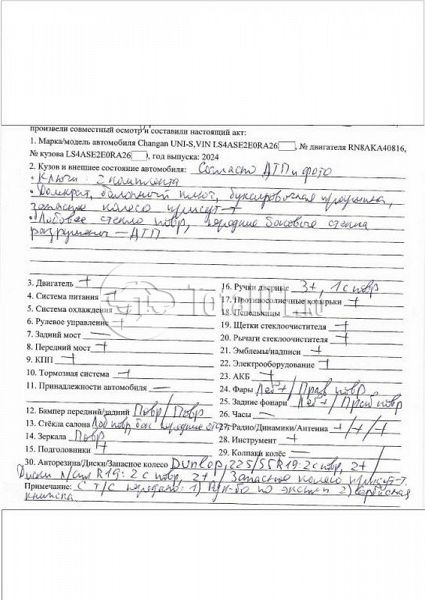 произвели совместный осмотр и составили настоящий акт:
1. Марка/модель автомобиля Changan UNI-S, VIN LS4ASE2E0RA26, № двигателя RN8AKA40816,
№ кузова LS4ASE2E0RA26, год выпуска: 2024
2. Кузов и внешнее состояние автомобиля: Согласно ДТП и фото
• Ключи: 2 комплекта
• Домкрат, балонный ключ, буксировочная проушина,
запасное колесо присут-т
• Лобовое стекло повр, передние боковые стекла
разрушены – ДТП
3. Двигатель +
4. Система питания +
5. Система охлаждения +
6. Рулевое управление +
7. Задний мост –
8. Передний мост +
9. КПП +
10. Тормозная система +
11. Принадлежности автомобиля –
12. Бампер передний/задний Повр/Повр
13. Стёкла салона Лоб повр, бок передние
14. Зеркала Повр
15. Подголовники +
16. Ручки дверные 3+, 1 с повр
17. Противосолнечные козырьки +
18. Пепельницы
19. Щетки стеклоочистителя +
20. Рычаги стеклоочистителя +
21. Эмблемы/надписи +
22. Электрооборудование +
23. АКБ +
24. Фары Лев+/Прав повр
25. Задние фонари Лев+/Прав повр
26. Часы –
27. Радио/Динамики/Антенна +/+/+
28. Инструмент +
29. Колпаки колёс –
30. Авторезина/Диски/Запасное колесо Dunlop, 225/55R19: 2 с повр, 2+/
Диски R19: 2 с повр, 2+/ Запасное колесо присут-т.
Примечание: С Т/С передано: 1) по эксплуат 2) сервисная
книжка